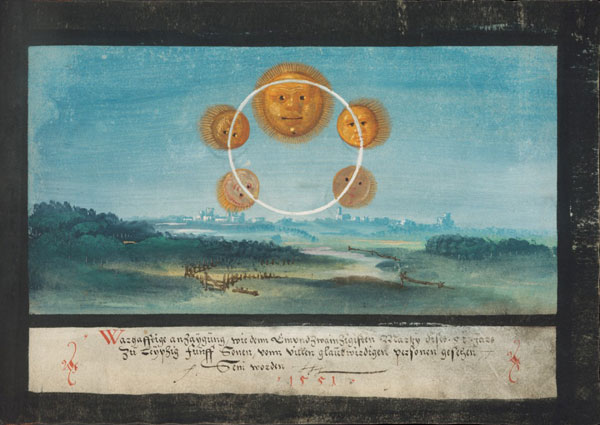 Warhafftige anzaygung, wie dem Eynundzwantzigisten Martzy dises 51 Jars
Zu Leyptzig Fünff Sonen, vonn villen glaubwirdigen personen gesehen
Sein worden
1551